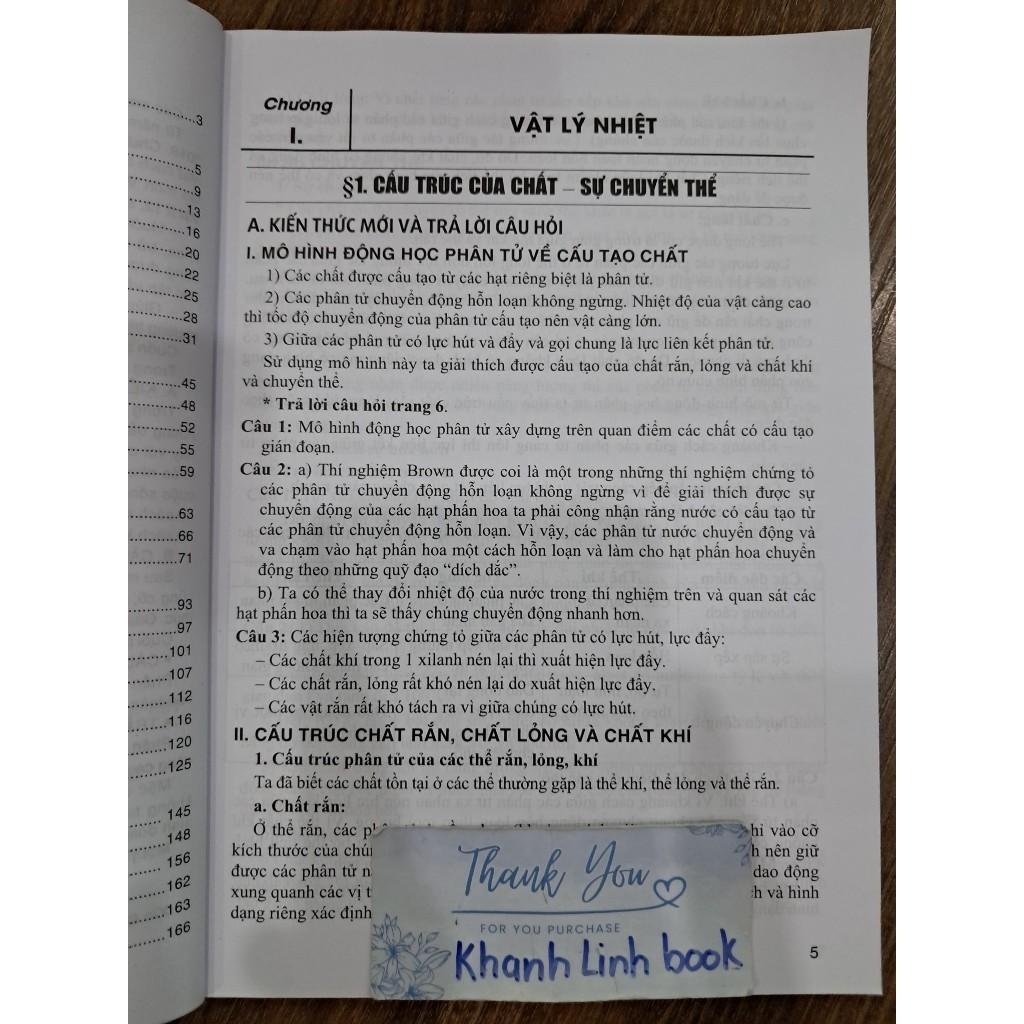 3
5
9
13
16
20
22
25
28
31
45
48
52
55
59
63
66
71
93
97
101
107
112
116
120
125
145
148
156
162
163
166
Chương
I.
VẬT LÝ NHIỆT
§1. CẤU TRÚC CỦA CHẤT – SỰ CHUYỂN THỂ
A. KIẾN THỨC MỚI VÀ TRẢ LỜI CÂU HỎI
I. MÔ HÌNH ĐỘNG HỌC PHÂN TỬ VỀ CẤU TẠO CHẤT
1) Các chất được cấu tạo từ các hạt riêng biệt là phân tử.
2) Các phân tử chuyển động hỗn loạn không ngừng. Nhiệt độ của vật càng cao
thì tốc độ chuyển động của phân tử cấu tạo nên vật càng lớn.
3) Giữa các phân tử có lực hút và đẩy và gọi chung là lực liên kết phân tử.
Sử dụng mô hình này ta giải thích được cấu tạo của chất rắn, lỏng và chất khí
và chuyển thể.
* Trả lời câu hỏi trang 6.
Câu 1: Mô hình động học phân tử xây dựng trên quan điểm các chất có cấu tạo
gián đoạn.
Câu 2: a) Thí nghiệm Brown được coi là một trong những thí nghiệm chứng tỏ
các phân tử chuyển động hỗn loạn không ngừng vì để giải thích được sự
chuyển động của các hạt phấn hoa ta phải công nhận rằng nước có cấu tạo từ
các phân tử chuyển động hỗn loạn. Vì vậy, các phân tử nước chuyển động và
va chạm vào hạt phấn hoa một cách hỗn loạn và làm cho hạt phấn hoa chuyển
động theo những quỹ đạo “dích dắc”.
b) Ta có thể thay đổi nhiệt độ của nước trong thí nghiệm trên và quan sát các
hạt phấn hoa thì ta sẽ thấy chúng chuyển động nhanh hơn.
Câu 3: Các hiện tượng chứng tỏ giữa các phân tử có lực hút, lực đẩy:
– Các chất khí trong 1 xilanh nén lại thì xuất hiện lực đẩy.
– Các chất rắn, lỏng rất khó nén lại do xuất hiện lực đẩy.
– Các vật rắn rất khó tách ra vì giữa chúng có lực hút.
II. CẤU TRÚC CHẤT RẮN, CHẤT LỎNG VÀ CHẤT KHÍ
1. Cấu trúc phân tử của các thể rắn, lỏng, khí
Ta đã biết các chất tồn tại ở các thể thường gặp là thể khí, thể lỏng và thể rắn.
a. Chất rắn:
Ở thể rắn, các vào cỡ
kích thước của nên giữ
được các phân tử dao động
xung quanh các vị và hình
dạng riêng xác định
Thank You
FOR YOU PURCHASE
Khanh Linh book
5